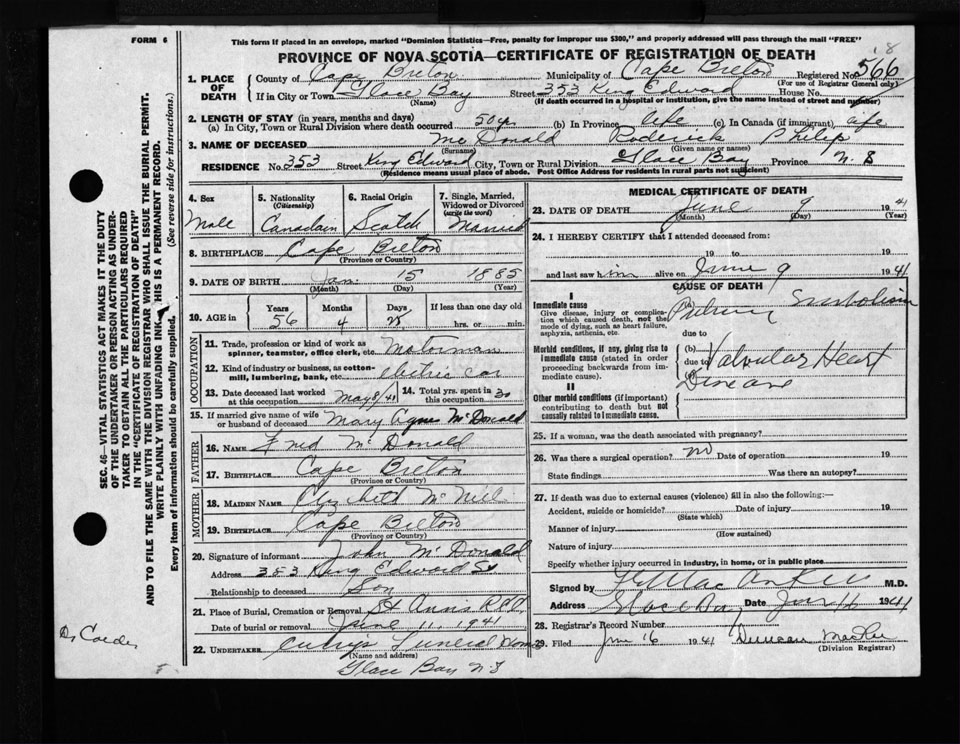 FORM 6
This form if placed in an envelope, marked "Dominion Statistics—Free, penalty for improper use $300," and properly addressed will pass through the mail "FREE"
18
PROVINCE OF NOVA SCOTIA—CERTIFICATE OF REGISTRATION OF DEATH
1. PLACE OF DEATH
County of Cape Breton Municipality of Cape Breton Registered No. 566
(For use of Registrar General only)
If in City or Town Glace Bay Street 353 King Edward House No.
(Name) (If death occurred in a hospital or institution, give the name instead of street and number)
2. LENGTH OF STAY (in years, months and days)
(a) In City, Town or Rural Division where death occurred 50 yr (b) In Province life (c) In Canada (if immigrant) life
3. NAME OF DECEASED McDonald Roderick Philip
(Surname) (Given name or names)
RESIDENCE No. 353 Street King Edward City, Town or Rural Division Glace Bay Province N.S
(Residence means usual place of abode. Post Office Address for residents in rural parts not sufficient)
4. Sex
Male
5. Nationality
(Citizenship)
Canadain
6. Racial Origin
Scotch
7. Single, Married, Widowed or Divorced
(write the word)
Married
8. BIRTHPLACE Cape Breton
(Province or Country)
9. DATE OF BIRTH Jan 15 1885
(Month) (Day) (Year)
10. AGE in
Years Months Days If less than one day
56 4 25 hrs. or min.
OCCUPATION
11. Trade, profession or kind of work as spinner, teamster, office clerk, etc. Motorman
12. Kind of industry or business, as cotton-mill, lumbering, bank, etc. electric car
13. Date deceased last worked at this occupation May 8/41
14. Total yrs. spent in this occupation 30
15. If married give name of wife or husband of deceased Mary Agnes McDonald
FATHER
16. NAME McDonald
17. BIRTHPLACE Cape Breton
(Province or Country)
MOTHER
18. MAIDEN NAME
19. BIRTHPLACE Cape Breton
(Province or Country)
20. Signature of informant John McDonald
Address 353 King Edward St
Relationship to deceased Son
21. Place of Burial, Cremation or Removal St Anns
Date of burial or removal June 11, 1941
22. UNDERTAKER Curry's Funeral Home
(Name and address)
Glace Bay N S
MEDICAL CERTIFICATE OF DEATH
23. DATE OF DEATH June 9 1941
(Month) (Day) (Year)
24. I HEREBY CERTIFY that I attended deceased from:
19 to 19
and last saw him alive on June 9 1941
CAUSE OF DEATH
I
Immediate cause
Give disease, injury or complication which caused death, not the mode of dying, such as heart failure, asphyxia, asthenia, etc.
Embolism
due to
Morbid conditions, if any, giving rise to immediate cause (stated in order proceeding backwards from immediate cause).
(b)
due to
Valvular Heart
Disease
II
Other morbid conditions (if important) contributing to death but not causally related to immediate cause.
25. If a woman, was the death associated with pregnancy?
26. Was there a surgical operation? no Date of operation 19
State findings Was there an autopsy?
27. If death was due to external causes (violence) fill in also the following:—
Accident, suicide or homicide? Date of injury 19
(State which)
Manner of injury
(How sustained)
Nature of injury
Specify whether injury occurred in industry, in home, or in public place
Signed by M.D.
Address Glace Bay Date 1941
28. Registrar's Record Number
29. Filed June 16 1941 Duncan
(Division Registrar)
SEC. 46—VITAL STATISTICS ACT MAKES IT THE DUTY OF THE UNDERTAKER OR PERSON ACTING AS UNDERTAKER TO OBTAIN ALL THE PARTICULARS REQUIRED IN THE "CERTIFICATE OF REGISTRATION OF DEATH" AND TO FILE THE SAME WITH THE DIVISION REGISTRAR WHO SHALL ISSUE THE BURIAL PERMIT.
WRITE PLAINLY WITH UNFADING INK. THIS IS A PERMANENT RECORD.
Every item of information should be carefully supplied. (See reverse side for instructions.)